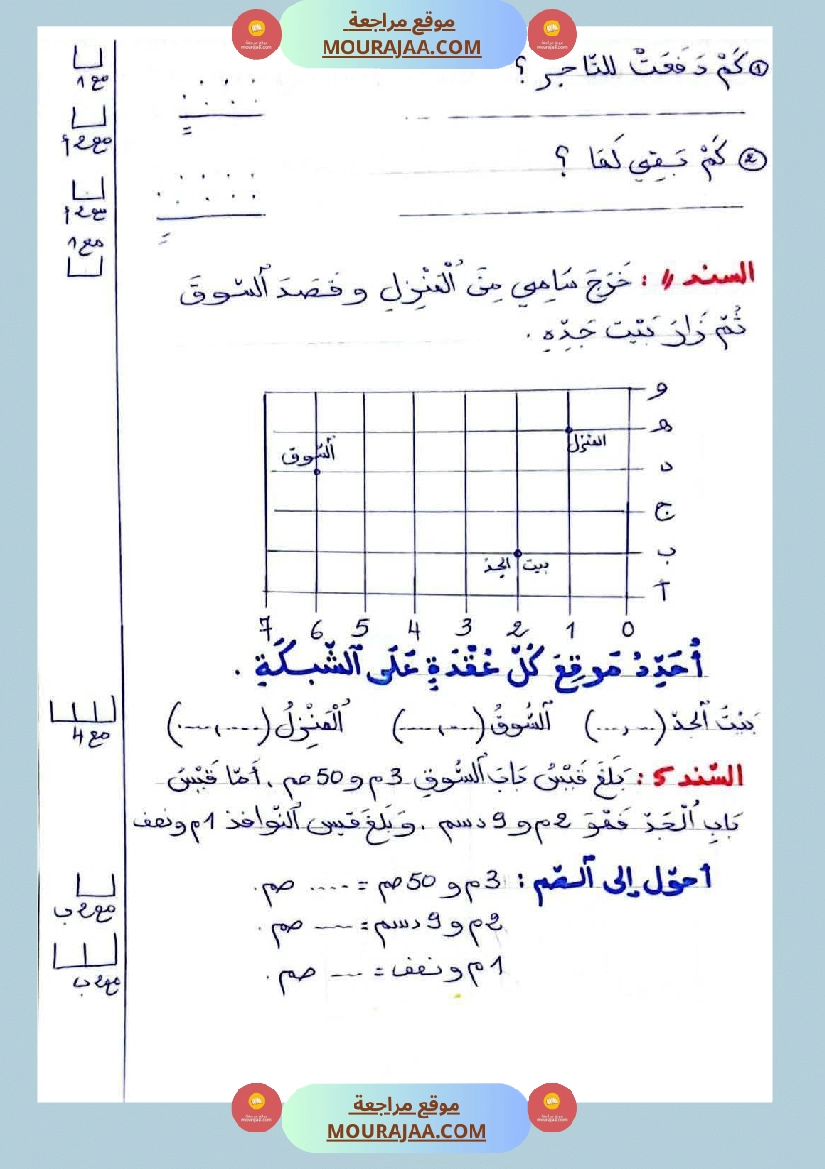 موقع مراجعة
MOURAJAA.COM
① كَمْ دَفَعَتْ للتّاجر ؟
② كَمْ بَقِيَ لَهَا ؟
السند 4 : خَرَجَ سَامِي مِنَ الْمَنْزِلِ و قَصَدَ السّوقَ
ثُمّ زَارَ بَيْتَ جَدِّهِ .
و
هـ
د
ج
ب
أ
المنزل
السّوق
بيت الجدّ
7 6 5 4 3 2 1 0
أُحَدِّدُ مَوقِعَ كُلّ عُقْدَةٍ عَلَى الشّبكَةِ .
بَيْتُ الجدّ (....,....) السُّوقُ (....,....) الْمَنْزِلُ (....,....)
السّند 5 : بَلَغَ قَيْسُ بَابَ السُّوقِ 3م و 50صم . أَمّا قَيْسُ
بَابِ الْجَدّ فَهُوَ 2م و 9دسم . وَ بَلَغَ قيس النّوافذ 1م ونصف
أحوّل إلى الصّم : 3م و 50صم = .... صم .
2م و 9دسم = .... صم .
1م ونصف = .... صم .
مع1
مع2أ
مع2أ
مع1
مع4
مع2ب
مع2ب
موقع مراجعة
MOURAJAA.COM